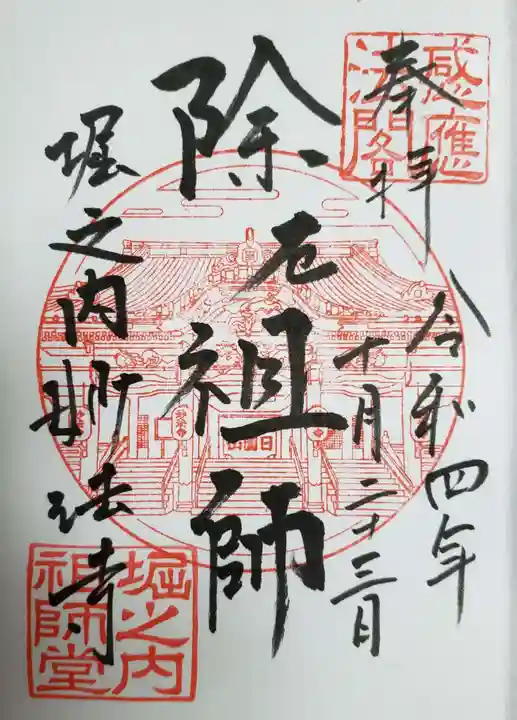 奉拝
令和四年
十月二十三日
除厄祖師
堀之内
妙法寺
感應
法閣
堀之内
祖師堂